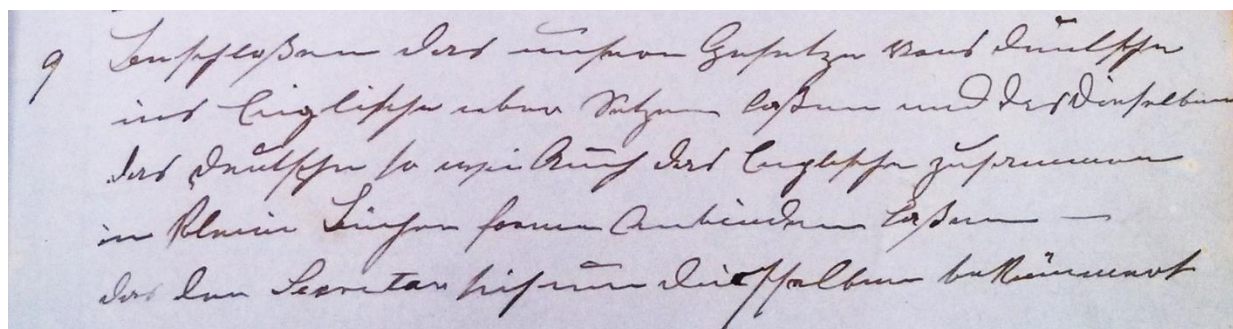 9 Beschloßen das unsere Gesetze vons deutsche
ins Englische uber Setzen laßen und das dieselben
das deutsche so wie Auch das Englische zusammen
in klein Bücher form Anbinden laßen —
das den Secretar sich um dieselben bekümmert